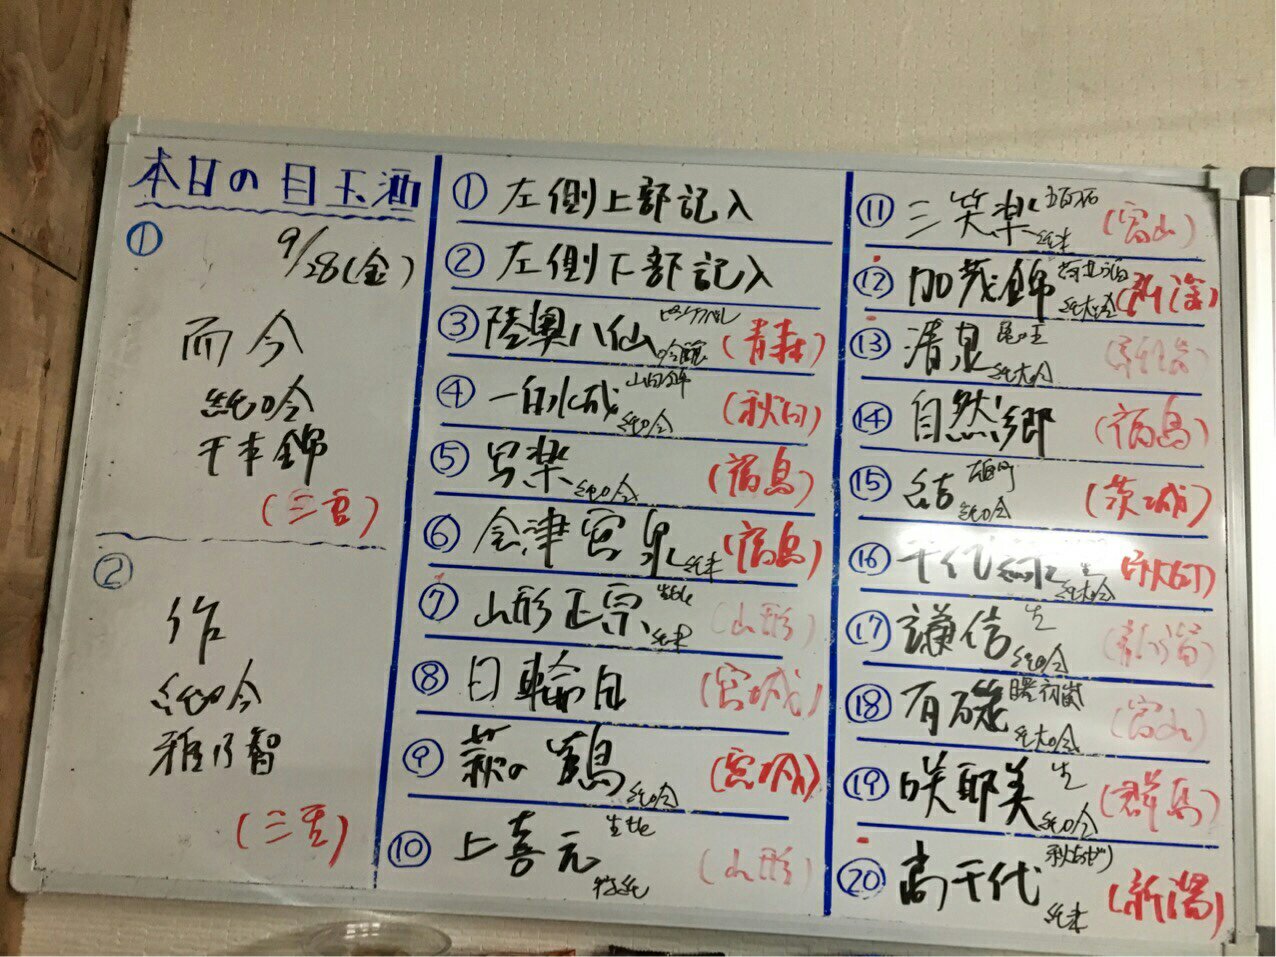 本日の目玉酒
①
9/28(金)
而今
純吟
千本錦
(三重)
②
作
純吟
雅乃智
(三重)
① 左側上部記入
② 左側下部記入
③ 陸奥八仙 吟醸 (青森)
④ 一白水成 山田錦 純吟 (秋田)
⑤ 写楽 純吟 (福島)
⑥ 会津宮泉 純米 (福島)
⑦ 山形正宗 純米 (山形)
⑧ 日輪田 (宮城)
⑨ 萩の鶴 純吟 (宮城)
⑩ 上喜元 生もと 特純 (山形)
⑪ 三笑楽 五百万石 純米 (富山)
⑫ 加茂錦 荷札酒 純大吟 (新潟)
⑬ 清泉 亀の王 純大吟 (新潟)
⑭ 自然郷 (福島)
⑮ 結 雄町 純吟 (茨城)
⑯ 千代緑 生 純大吟 (秋田)
⑰ 謙信 生 純吟 (新潟)
⑱ 有磯 曙 初嵐 純大吟 (富山)
⑲ 咲耶美 生 純吟 (群馬)
⑳ 高千代 秋あがり 純米 (新潟)